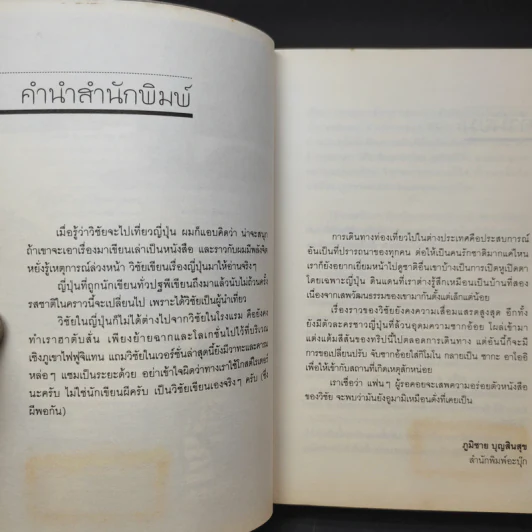 คำนำสำนักพิมพ์
เมื่อรู้ว่าวิชัยจะไปเที่ยวญี่ปุ่น ผมก็แอบคิดว่า น่าจะสนุก
ถ้าเขาจะเอาเรื่องมาเขียนเล่าเป็นหนังสือ และราวกับผมมีพลังจิต
หยั่งรู้เหตุการณ์ล่วงหน้า วิชัยเขียนเรื่องญี่ปุ่นมาให้อ่านจริงๆ
ญี่ปุ่นที่ถูกนักเขียนทั่วปฐพีเขียนถึงมาแล้วนับไม่ถ้วนครั้ง
รสชาติในคราวนี้จะเปลี่ยนไป เพราะได้วิชัยเป็นผู้นำเที่ยว
วิชัยในญี่ปุ่นก็ไม่ได้ต่างไปจากวิชัยในโรงแรม คือยังคง
ทำเราฮาตับสั่น เพียงย้ายฉากและโลเกชั่นไปไว้ที่บริเวณ
เชิงภูเขาไฟฟูจิแทน แถมวิชัยในเวอร์ชั่นล่าสุดนี้ยังมีวาทะและคารม
หล่อๆ แซมเป็นระยะด้วย อย่าเข้าใจผิดว่าทางเราใช้โกสต์ไรเตอร์
นะครับ ไม่ใช่นักเขียนผีครับ เป็นวิชัยเขียนเองจริงๆ ครับ (ซึ่ง
ผีพอกัน)
การเดินทางท่องเที่ยวไปในต่างประเทศคือประสบการณ์
อันเป็นที่ปรารถนาของทุกคน ต่อให้เป็นคนรักชาติมากแค่ไหน
เราก็ยังอยากเยี่ยมหน้าไปดูชาติอื่นเขาบ้างเป็นการเปิดหูเปิดตา
โดยเฉพาะญี่ปุ่น ดินแดนที่เราต่างรู้สึกเหมือนเป็นบ้านที่สอง
เนื่องจากเสพวัฒนธรรมของเขามากันตั้งแต่เด็กแต่น้อย
เรื่องราวของวิชัยยังคงความเสื่อมแสรดสูงสุด อีกทั้ง
ยังมีตัวละครชาวญี่ปุ่นที่ล้วนอุดมความชาญน้อย โผล่เข้ามา
แต่งแต้มสีสันของทริปนี้ไปตลอดการเดินทาง แต่อันนี้ก็จะมี
การขอเปลี่ยนปรับ จับชาญอ้อยใส่กิโมโน กลายเป็น
เพื่อให้เข้ากับสถานที่เกิดเหตุสักหน่อย
เราเชื่อว่า แฟนๆ ผู้รอคอยจะเสพความอร่อยตัวหนังสือ
ของวิชัย จะพบว่ามันยังอูมามิเหมือนดั่งที่เคยเป็น
ภูมิชาย บุญสินสุข
สำนักพิมพ์อะบุ๊ก